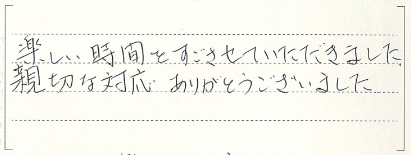 楽しい時間をすごさせていただきました。
親切な対応 ありがとうございました